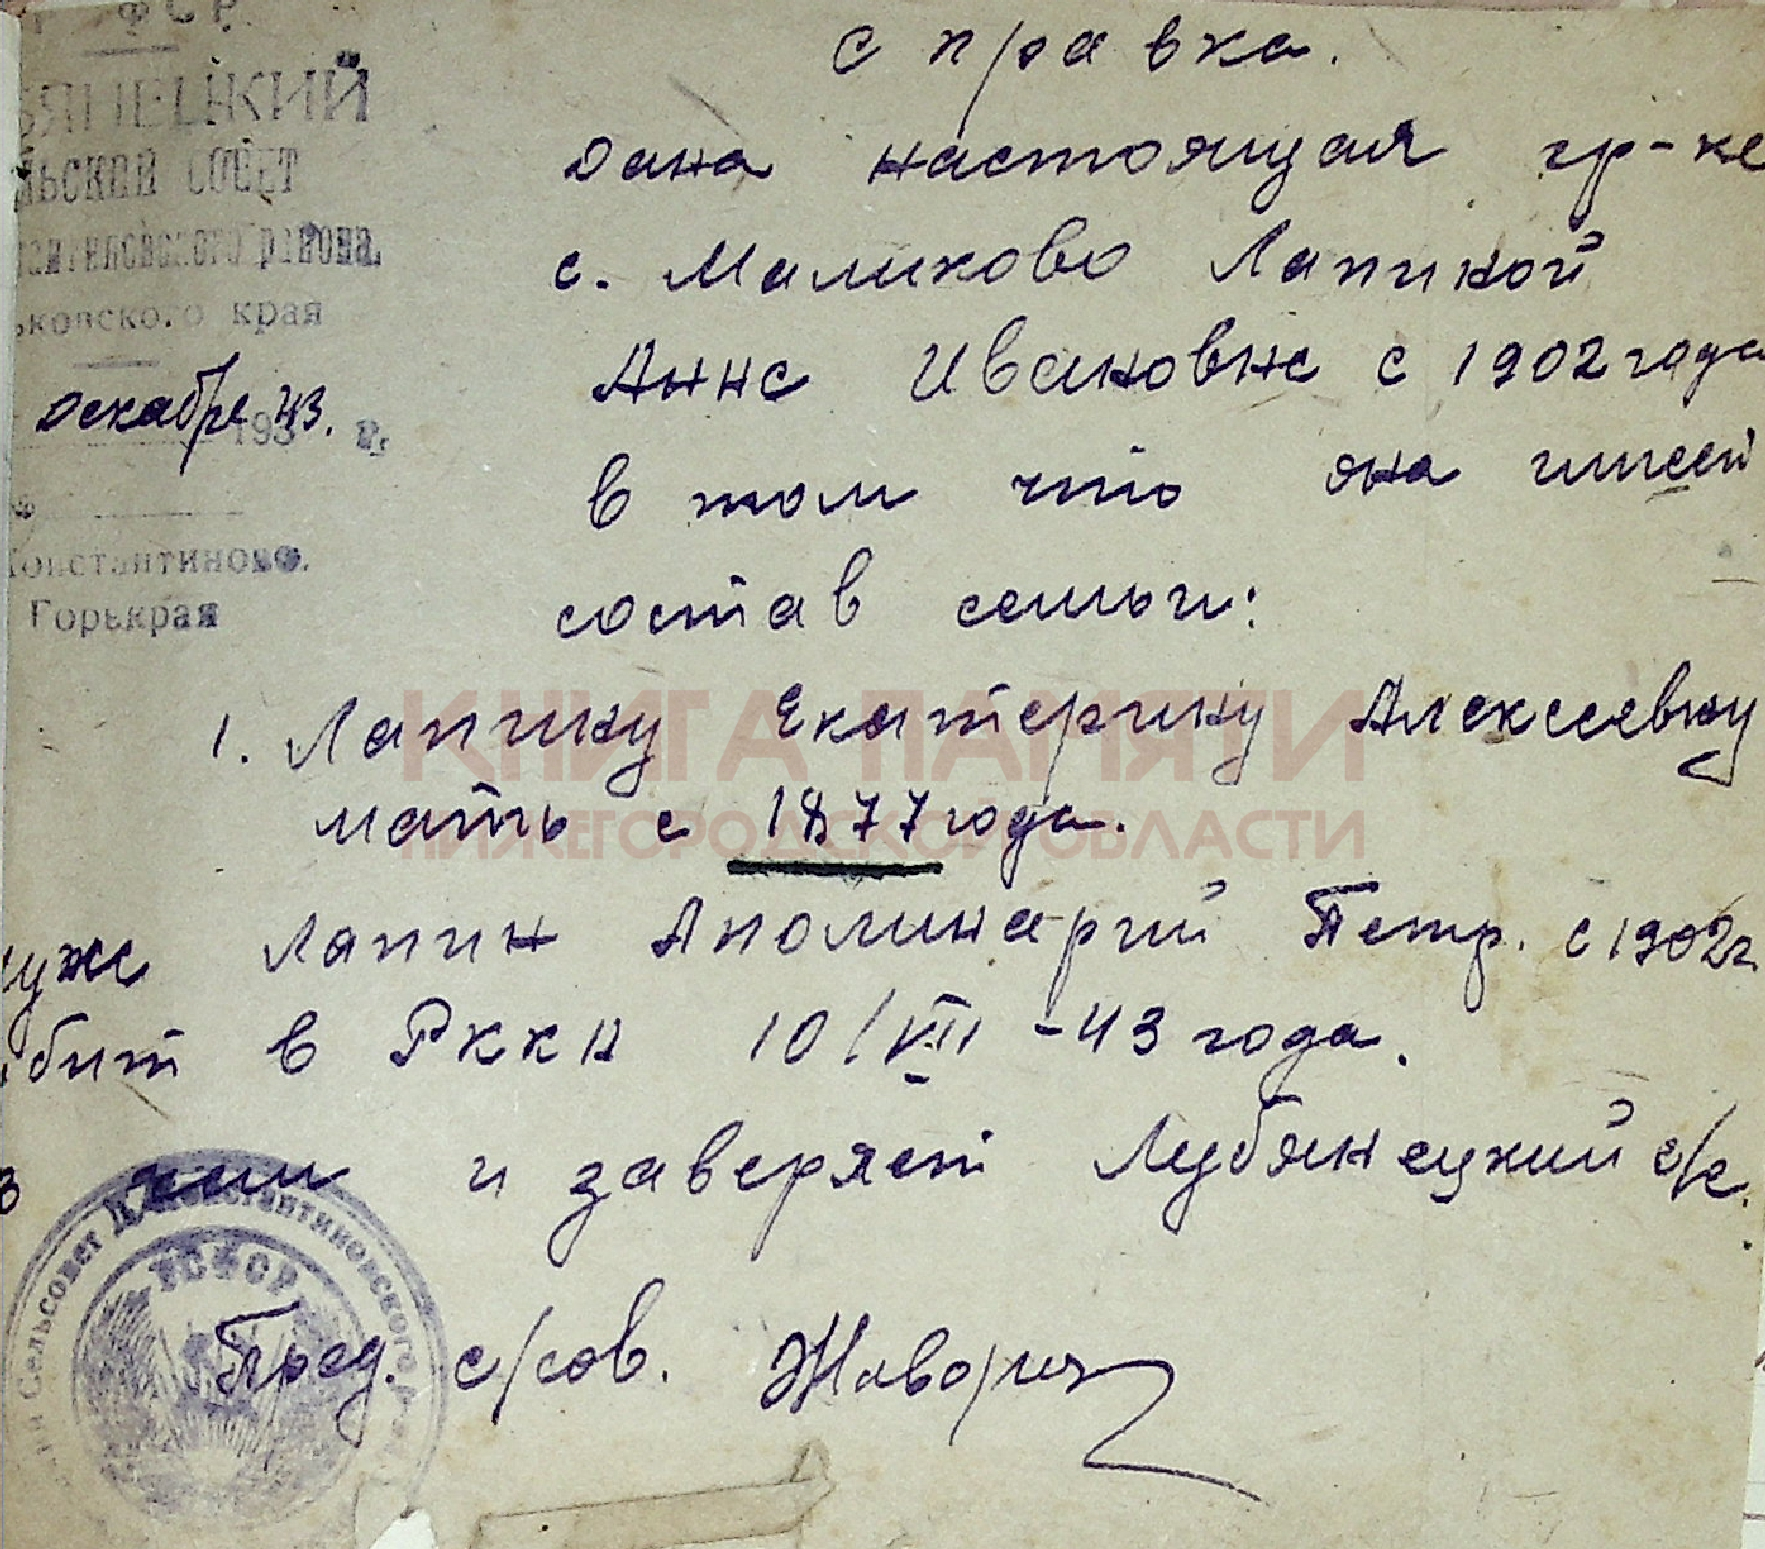 С П Р А В К А.
РСФСР
БЯНЕЦКИЙ
ЛЬСКИЙ СОВЕТ
стантиновского района,
ьковского края
декабре 43.
193 г.
Константиново.
Горькрая
справка.
дана настоящая гр-ке
с. Маликово Лапиной
Анне Ивановне с 1902 года
в том что она имеет
состав семьи:
1. Лапину Екатерину Алексеевну
мать с 1877 года.
муж Лапин Аполинарий Петр. с 1902 г.
убит в РККА 10/VII - 43 года.
в чем и заверяет Лубянецкий с/с.
Пред. с/сов.
Сельсовет Д. Константиновского
РСФСР
КНИГА ПАМЯТИ
НИЖЕГОРОДСКОЙ ОБЛАСТИ